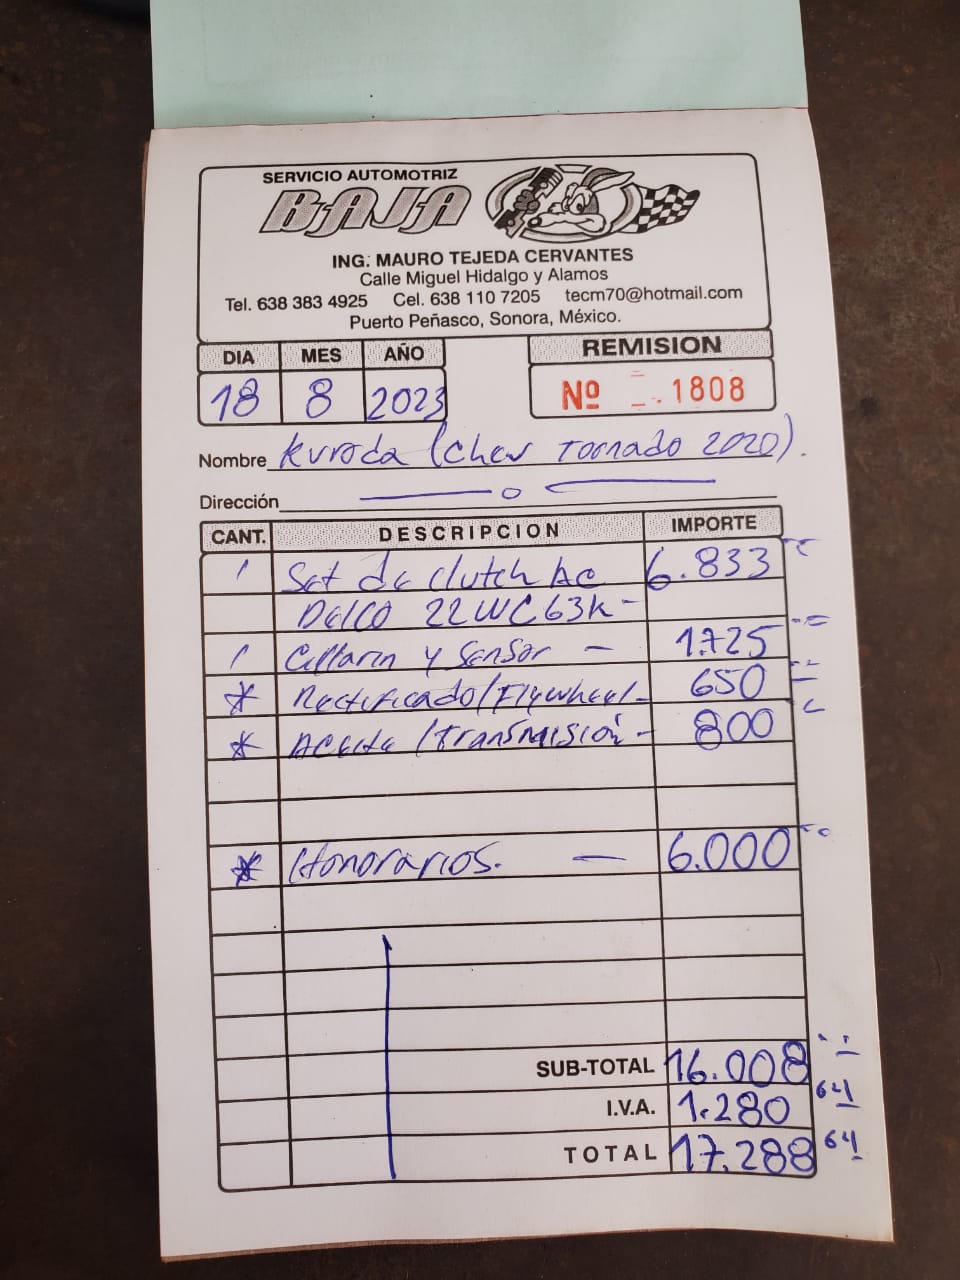 SERVICIO AUTOMOTRIZ
BAJA
ING. MAURO TEJEDA CERVANTES
Calle Miguel Hidalgo y Alamos
Tel. 638 383 4925 Cel. 638 110 7205 tecm70@hotmail.com
Puerto Peñasco, Sonora, México.
DIA MES AÑO REMISION
18 8 2023 Nº 1808
Nombre Kuroda (Chev Tornado 2020).
Dirección
CANT. DESCRIPCION IMPORTE
1 Set de clutch AC 6.833
Delco 22WC63K -
1 Collarin y Sensor - 1.725
* Rectificado/Flywheel - 650
* Aceite/Transmisión - 800
* Honorarios. - 6.000
SUB-TOTAL 16.008
I.V.A. 1.280 64
TOTAL 17.288 64